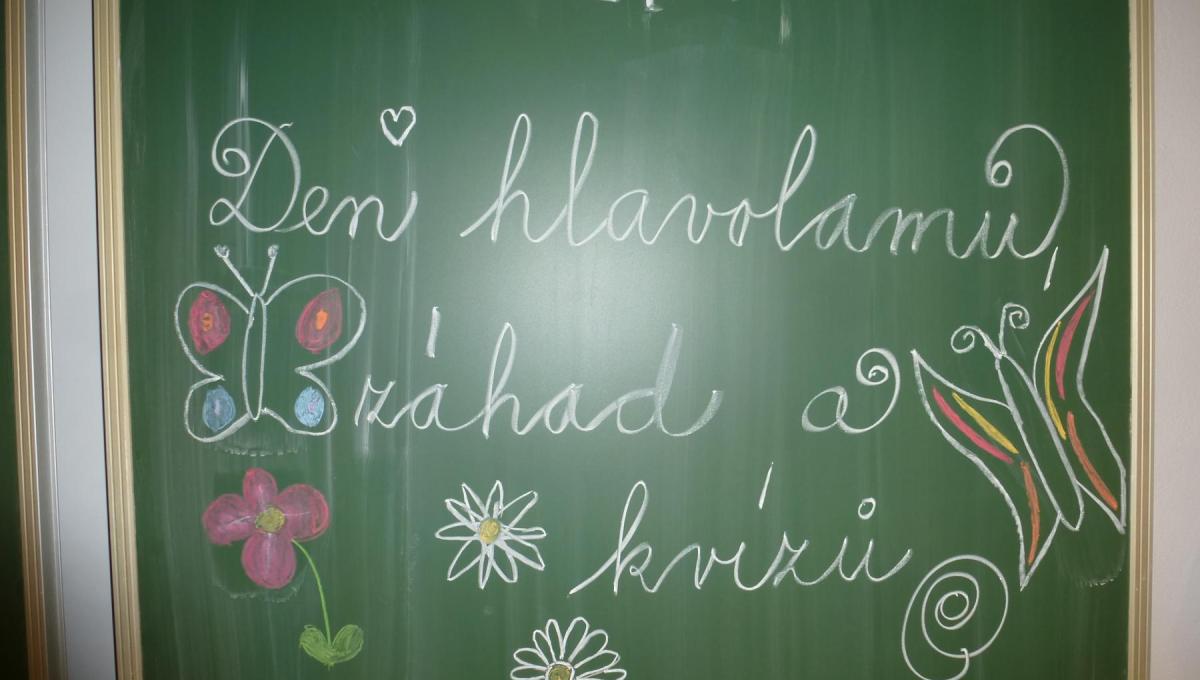 Den hlavolamů,
záhad a
kvízů